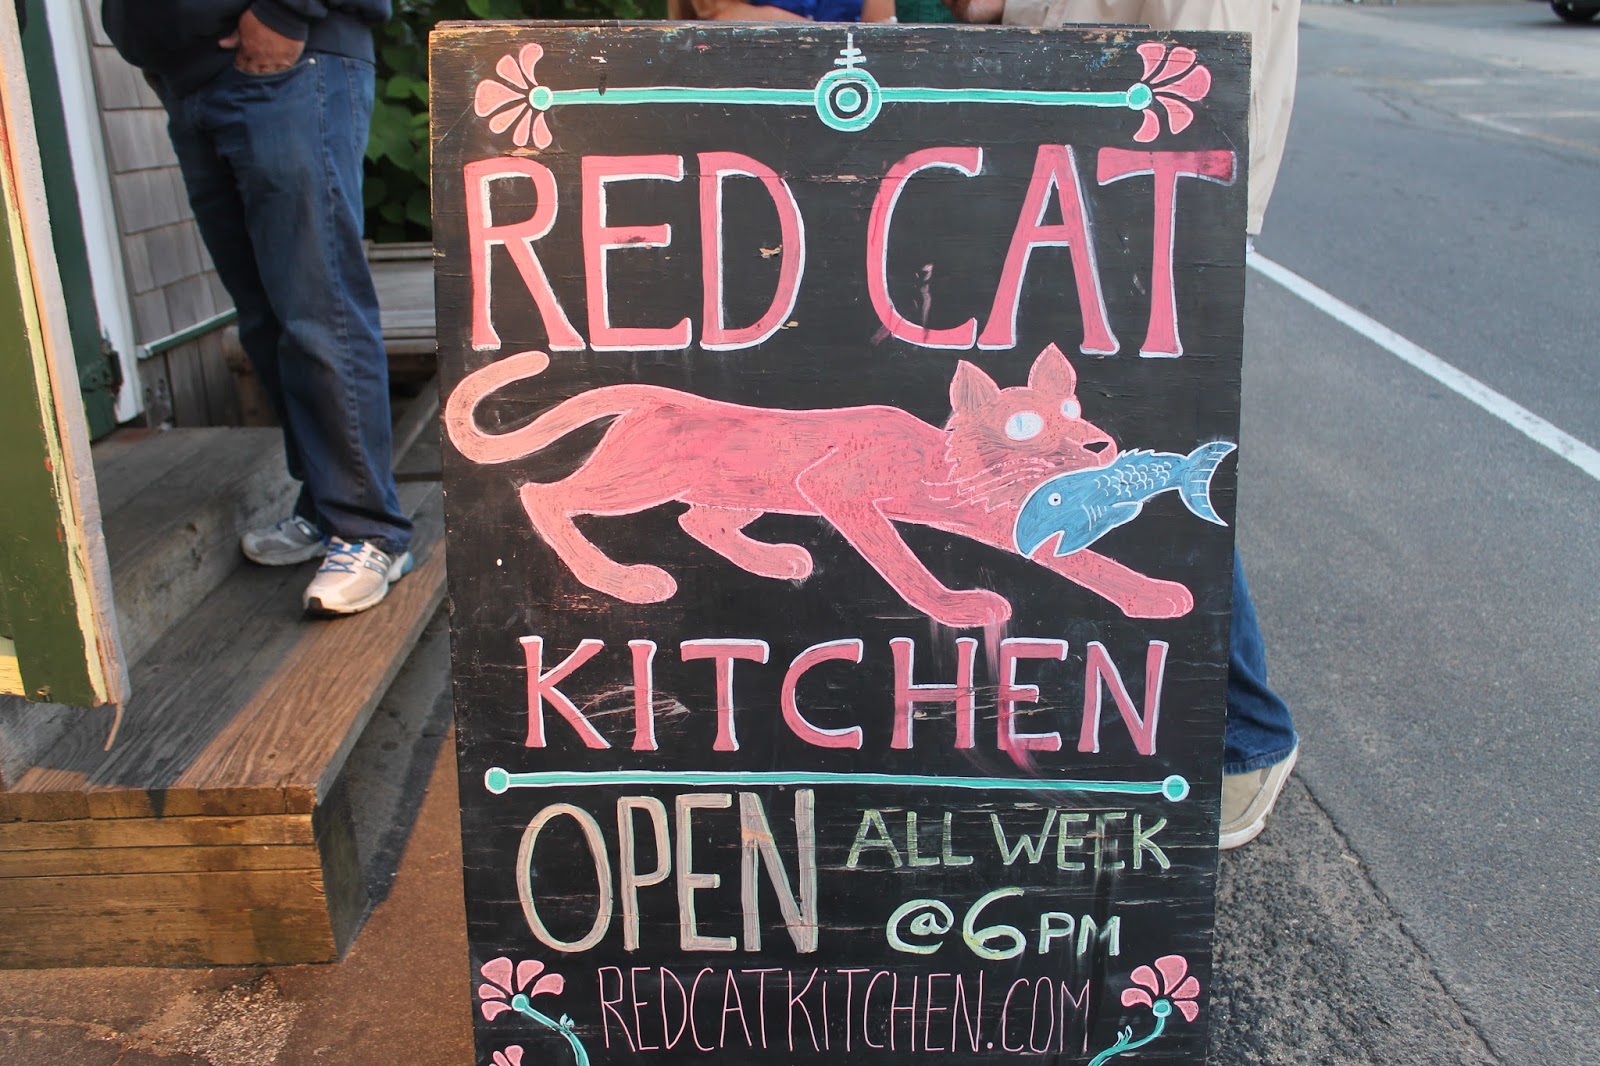 RED CAT
KITCHEN
OPEN ALL WEEK
@6PM
REDCATKiTCHEN.COM